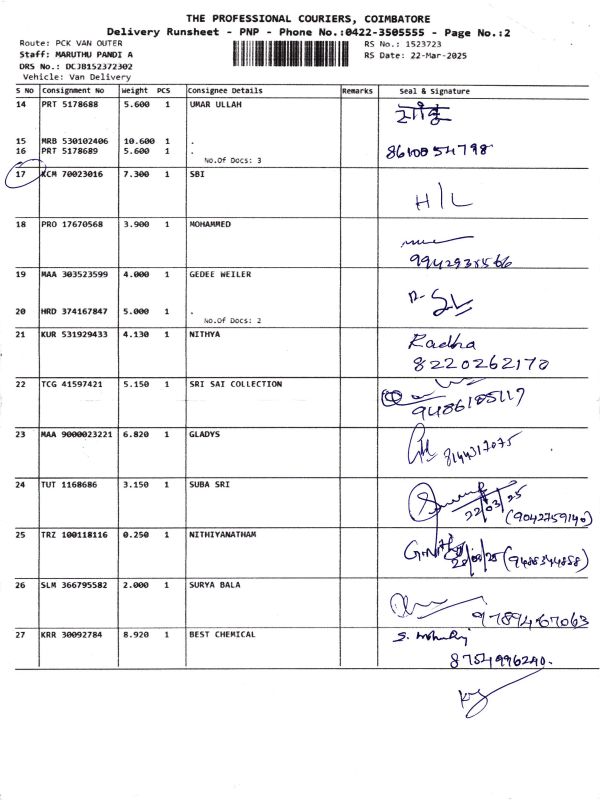 THE PROFESSIONAL COURIERS, COIMBATORE
Delivery Runsheet - PNP - Phone No.:0422-3505555 - Page No.:2
Route: PCK VAN OUTER RS No.: 1523723
Staff: MARUTHU PANDI A RS Date: 22-Mar-2025
DRS No.: DCJB152372302
Vehicle: Van Delivery
S No Consignment No Weight PCS Consignee Details Remarks Seal & Signature
14 PRT 5178688 5.600 1 UMAR ULLAH
15 MRB 530102406 10.600 1 .
16 PRT 5178689 5.600 1 . 8610054798
No.Of Docs: 3
17 KCM 70023016 7.300 1 SBI
H/L
18 PRO 17670568 3.900 1 MOHAMMED
19 MAA 303523599 4.000 1 GEDEE WEILER
20 HRD 374167847 5.000 1 .
No.Of Docs: 2
21 KUR 531929433 4.130 1 NITHYA Radha
8220262170
22 TCG 41597421 5.150 1 SRI SAI COLLECTION
9486185117
23 MAA 9000023221 6.820 1 GLADYS
24 TUT 1168686 3.150 1 SUBA SRI
22/03/25
(9042759140)
25 TRZ 100118116 0.250 1 NITHIYANATHAM
26 SLM 366795582 2.000 1 SURYA BALA
9789467063
27 KRR 30092784 8.920 1 BEST CHEMICAL
8754996240.